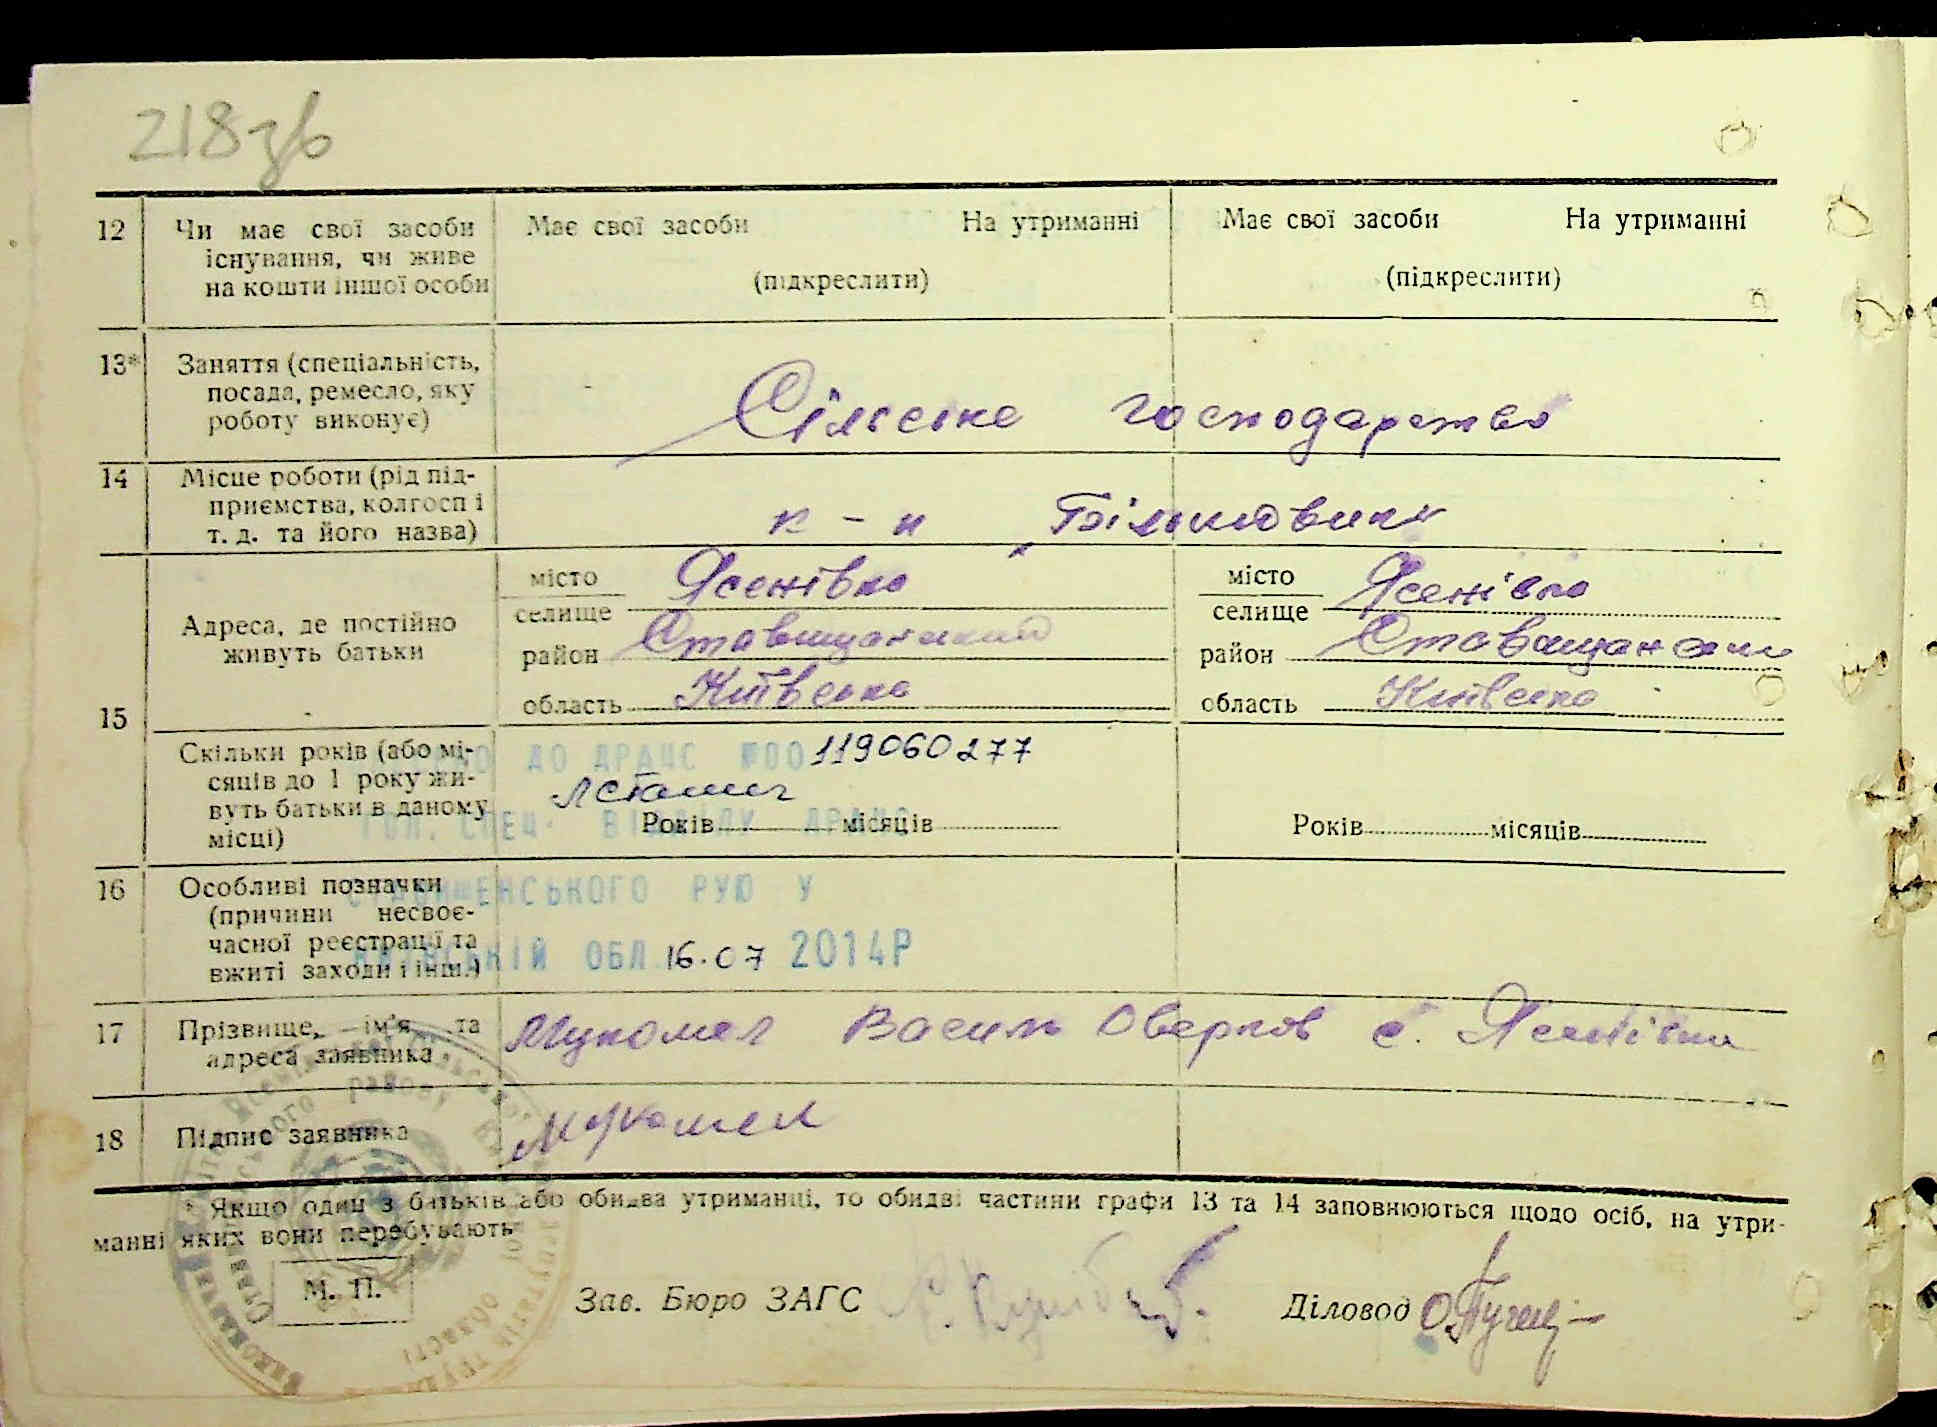 218зв
12 Чи має свої засоби Має свої засоби На утриманні Має свої засоби На утриманні
існування, чи живе
на кошти іншої особи (підкреслити) (підкреслити)
13* Заняття (спеціальність,
посада, ремесло, яку Сільське господарство
роботу виконує)
14 Місце роботи (рід під-
приємства, колгосп і к-п „Більшовик"
т. д. та його назва)
15 Адреса, де постійно
живуть батьки
місто Ясенівка місто Ясенівка
селище селище
район Ставищанський район Ставищански
область Київська область Київська
Скільки років (або мі-
сяців до 1 року жи-
вуть батьки в даному
місці)
ДО ДРАЦС №00119060277
Років місяців Років місяців
ГОЛ. СПЕЦ. ВІДДІЛУ ДРАЦС
16 Особливі позначки
(причини несвоє-
часної реєстрації та
вжиті заходи і інш.)
СТАВИЩЕНСЬКОГО РУЮ У
КИЇВСЬКІЙ ОБЛ 16.07 2014Р
17 Прізвище, ім'я та Мукомел Василь Оверков с. Ясенівка
адреса заявника
18 Підпис заявника Мукомел
* Якщо один з батьків або обидва утриманці, то обидві частини графи 13 та 14 заповнюються щодо осіб, на утри-
манні яких вони перебувають
М. П. Зав. Бюро ЗАГС Діловод